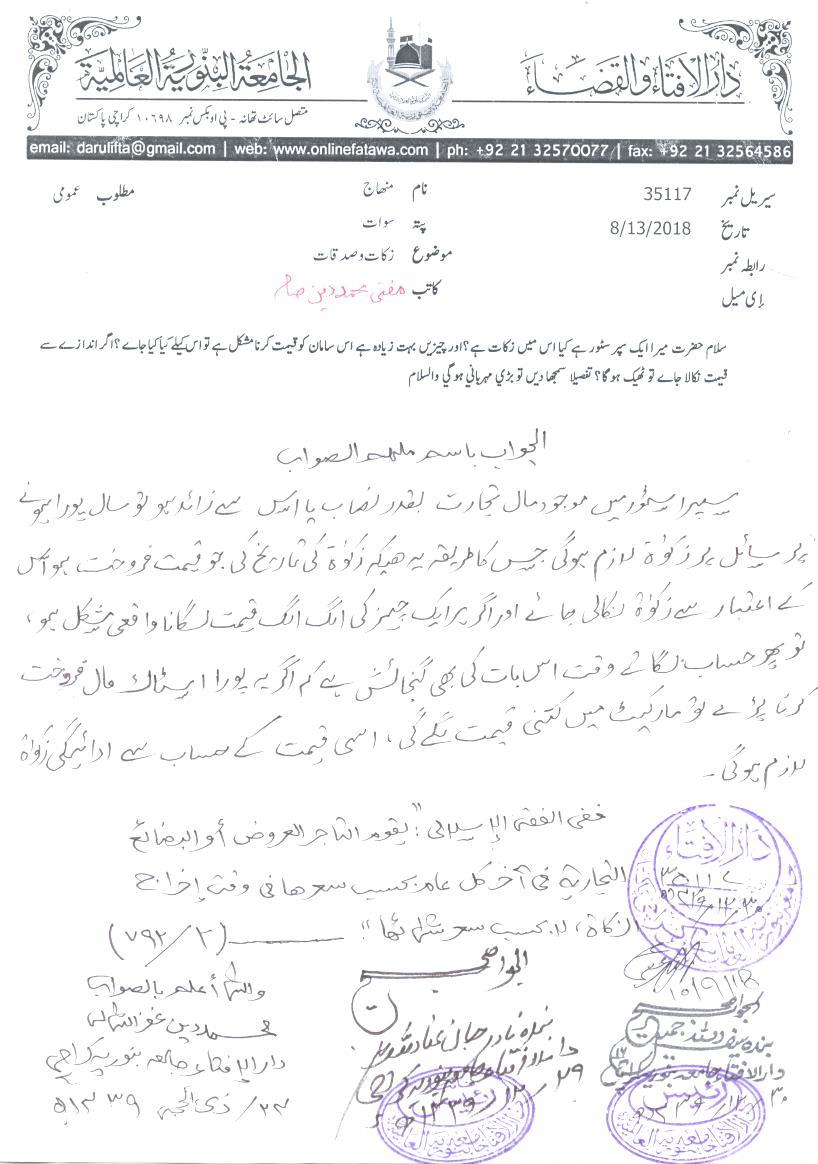 دارالافتاء والقضاء
الجامعة البنورية العالمية
متصل سائٹ تھانہ - پی او بکس نمبر ۱۰۶۹۸ کراچی پاکستان
email: darulifta@gmail.com | web: www.onlinefatawa.com | ph: +92 21 32570077 | fax: +92 21 32564586
سیریل نمبر 35117 نام منھاج مطلوب عمومی
تاریخ 8/13/2018 پتہ سوات
رابطہ نمبر موضوع زکات و صدقات
اِی میل کاتب مفتی محمد دین صاحب
سلام حضرت میرا ایک سپر سٹور ہے کیا اس میں زکات ہے؟ اور چیزیں بہت زیادہ ہے اس سامان کو قیمت کرنا مشکل ہے تو اس کیلے کیا کیا جاے؟ اگر اندازے سے
قیمت نکالا جاے تو ٹھیک ہوگا؟ تفصیلا سمجھا دیں تو بڑي مہرباني ہوگي والسلام
الجواب باسم ملہم الصواب
سپر اسٹور میں موجود مال تجارت بقدر نصاب یا اس سے زائد ہو تو سال پورا ہونے
پر سائل پر زکوٰۃ لازم ہوگی جس کا طریقہ یہ ہیکہ زکوٰۃ کی تاریخ کی جو قیمت فروخت ہو اس
کے اعتبار سے زکوٰۃ نکالی جائے اور اگر ہر ایک چیز کی الگ الگ قیمت لگانا واقعی مشکل ہو،
تو پھر حساب لگاتے وقت اس بات کی بھی گنجائش ہے کہ اگر یہ پورا اسٹاک مال فروخت
کرنا پڑے تو مارکیٹ میں کتنی قیمت لگے گی، اسی قیمت کے حساب سے ادائیگی زکوٰۃ
لازم ہوگی۔
ففی الفقہ الإسلامی: "یقوم التاجر العروض أو البضائع
التجاریۃ فی آخر کل عام بحسب سعرھا فی وقت إخراج
الزکاۃ، لا بحسب سعر شرائھا" (۷۹۲/۲)
واللہ أعلم بالصواب
محمد دین غفر اللہ لہ
دارالإفتاء جامعہ بنوریہ کراچی
۲۲/ ذی الحجہ ۱۴۳۹ھ
الجواب صحیح
بندہ نادر جان
دارالافتاء جامعہ بنوریہ کراچی
۲۹/۱۲/۱۴۳۹ھ
الجواب صحیح
دارالافتاء جامعہ بنوریہ
۳۰/۱۲/۱۴۳۹ھ
دارالافتاء
۳۵۱۱۷
رئیس
رئیس